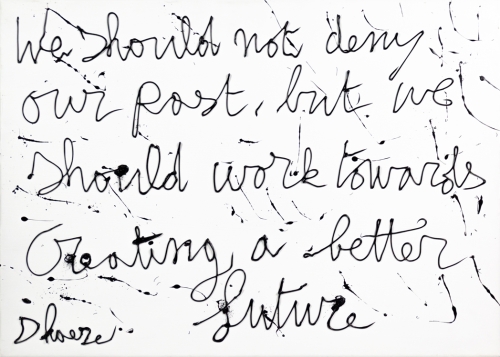 We should not deny
our past, but we
should work towards
Creating a better
future